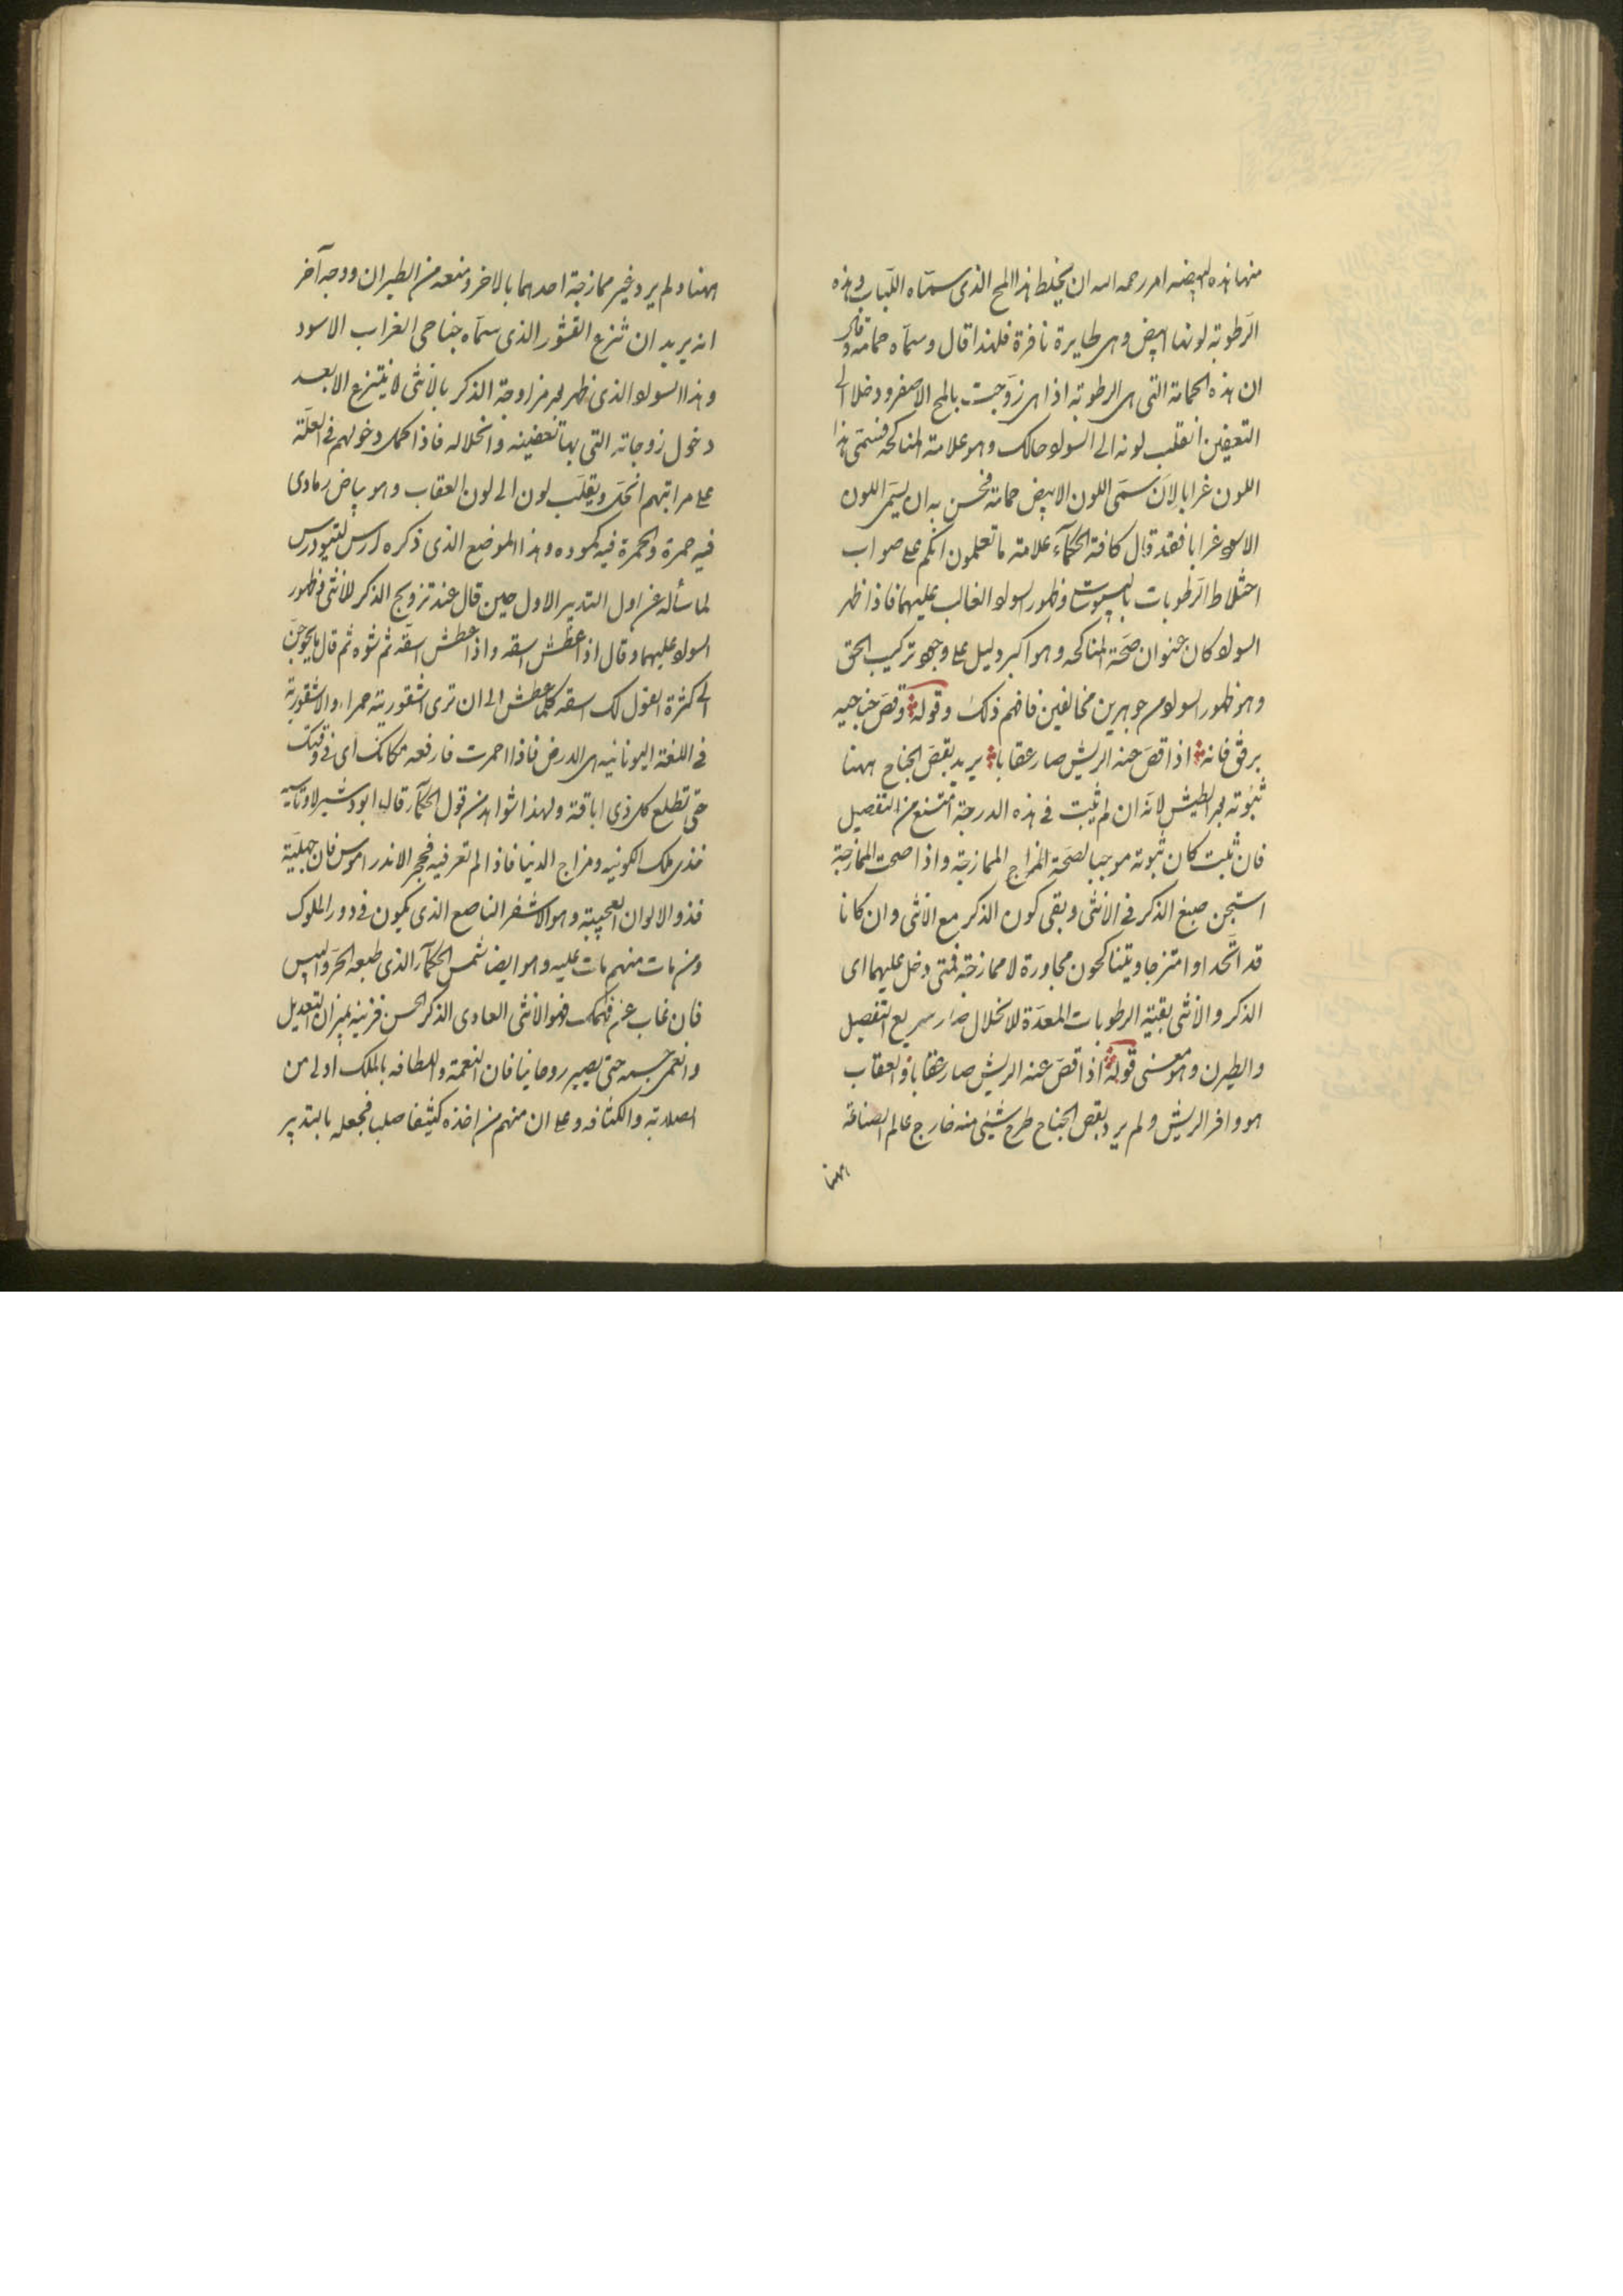 منها هذه البيضه امر رحمه الله ان يخلط هذا المح الذى سماه اللباب وهذه
الرطوبة لونها ابيض وهى طايرة نافرة فلهذا قال وسماه حمامة وقال
ان هذه الحمامة التى هى الرطوبة اذا هى زوجت بالمح الاصفر ودخلا الى
التعفين انقلب لونه الى السواد حالك وهو علامة المناكحه فسمى هذا
اللون غرابا لان سمى اللون الابيض حمامة فحسن به ان يسمى اللون
الاسود غرابا فقد قال كافة الحكماء علامة ما تعلمون انكم على صواب
اختلاط الرطوبات باليبوسات وظهور السواد الغالب عليهما فاذا ظهر
السواد كان عنوان صحة المناكحه وهو اكبر دليل على وجود تركيب الحق
وهو ظهور السواد من جوهرين مخالفين فافهم ذلك وقوله وقص جناحيه
برفق فانه اذا قص عنه الريش صار عقابا يريد بقص الجناح ههنا
ثبوته بعد الطيش لانه ان لم يثبت فى هذه الدرجة امتنع من التفصيل
فان ثبت كان ثبوته موجبا لصحة المزاج الممازجة واذا صحت الممازجة
استجن صبغ الذكر فى الانثى وبقى كون الذكر مع الانثى وان كانا
قد اتحدا وامتزجا ويتناكحون مجاورة لا ممازجة فمتى دخل عليهما اى
الذكر والانثى بقية الرطوبات المعدة للانحلال صار سريع التفصيل
والطيرن وهو معنى قوله اذا قص عنه الريش صار عقابا والعقاب
هو وافر الريش ولم يرد بقص الجناح طرح شيئى منه خارج عالم الصناعة
ههنا
ههنا ولم يرد غير ممازجة احدهما بالاخر ومنعه من الطيران ووجه آخر
انه يريد ان تنزع القشور الذى سماه جناحى الغراب الاسود
وهذا السواد الذى ظهر من مزاوجة الذكر بالانثى لا ينتزع الا بعد
دخول زوجاته التى بها تعفينه وانحلاله فاذا كمل دخولهم فى العلة
على مراتبهم انحل ويقلب لون الى لون العقاب وهو بياض رمادى
فيه حمرة والحمرة فيه كموده وهذا الموضع الذى ذكره ارس لتيودرس
لما سأله عن اول التدبير الاول حين قال عند تزويج الذكر للانثى وظهور
السواد عليهما وقال اذا عطش اسقه واذا عطش اسقه ثم شوه ثم قال
الى كثرة القول لك اسقه كلما عطش الى ان ترى اشقورية حمراء والاشقورية
فى اللغة اليونانيه هى الدرض فاذا احمرت فارفعه مكانك اى فى وقتك
حتى تطلع كل ذى اباقة ولهذا شواهد من قول الحكماء قال ابو دشير لاوتاسيه
فذى ملك الكونيه ومزاج الدنيا فاذا لم تعرفيه فحجر الاندراموس فان جهلتيه
فذو الالوان العجيبة وهو الاشقر الناصع الذى يكون فى دور الملوك
ومن مات منهم مات عليه وهو ايضا شمس الحكماء الذى طبعه الحر واليبس
فان غاب عن فهمك فهو الانثى العادى الذكر الحسن فزنيه بميزان التعديل
وانعمى جسمه حتى يصير روحانيا فان النعمة واللطافه بالملك اولى من
الصلابة والكثافه وعلى ان منهم من اخذه كثيفا صلبا فجعله بالتدبير